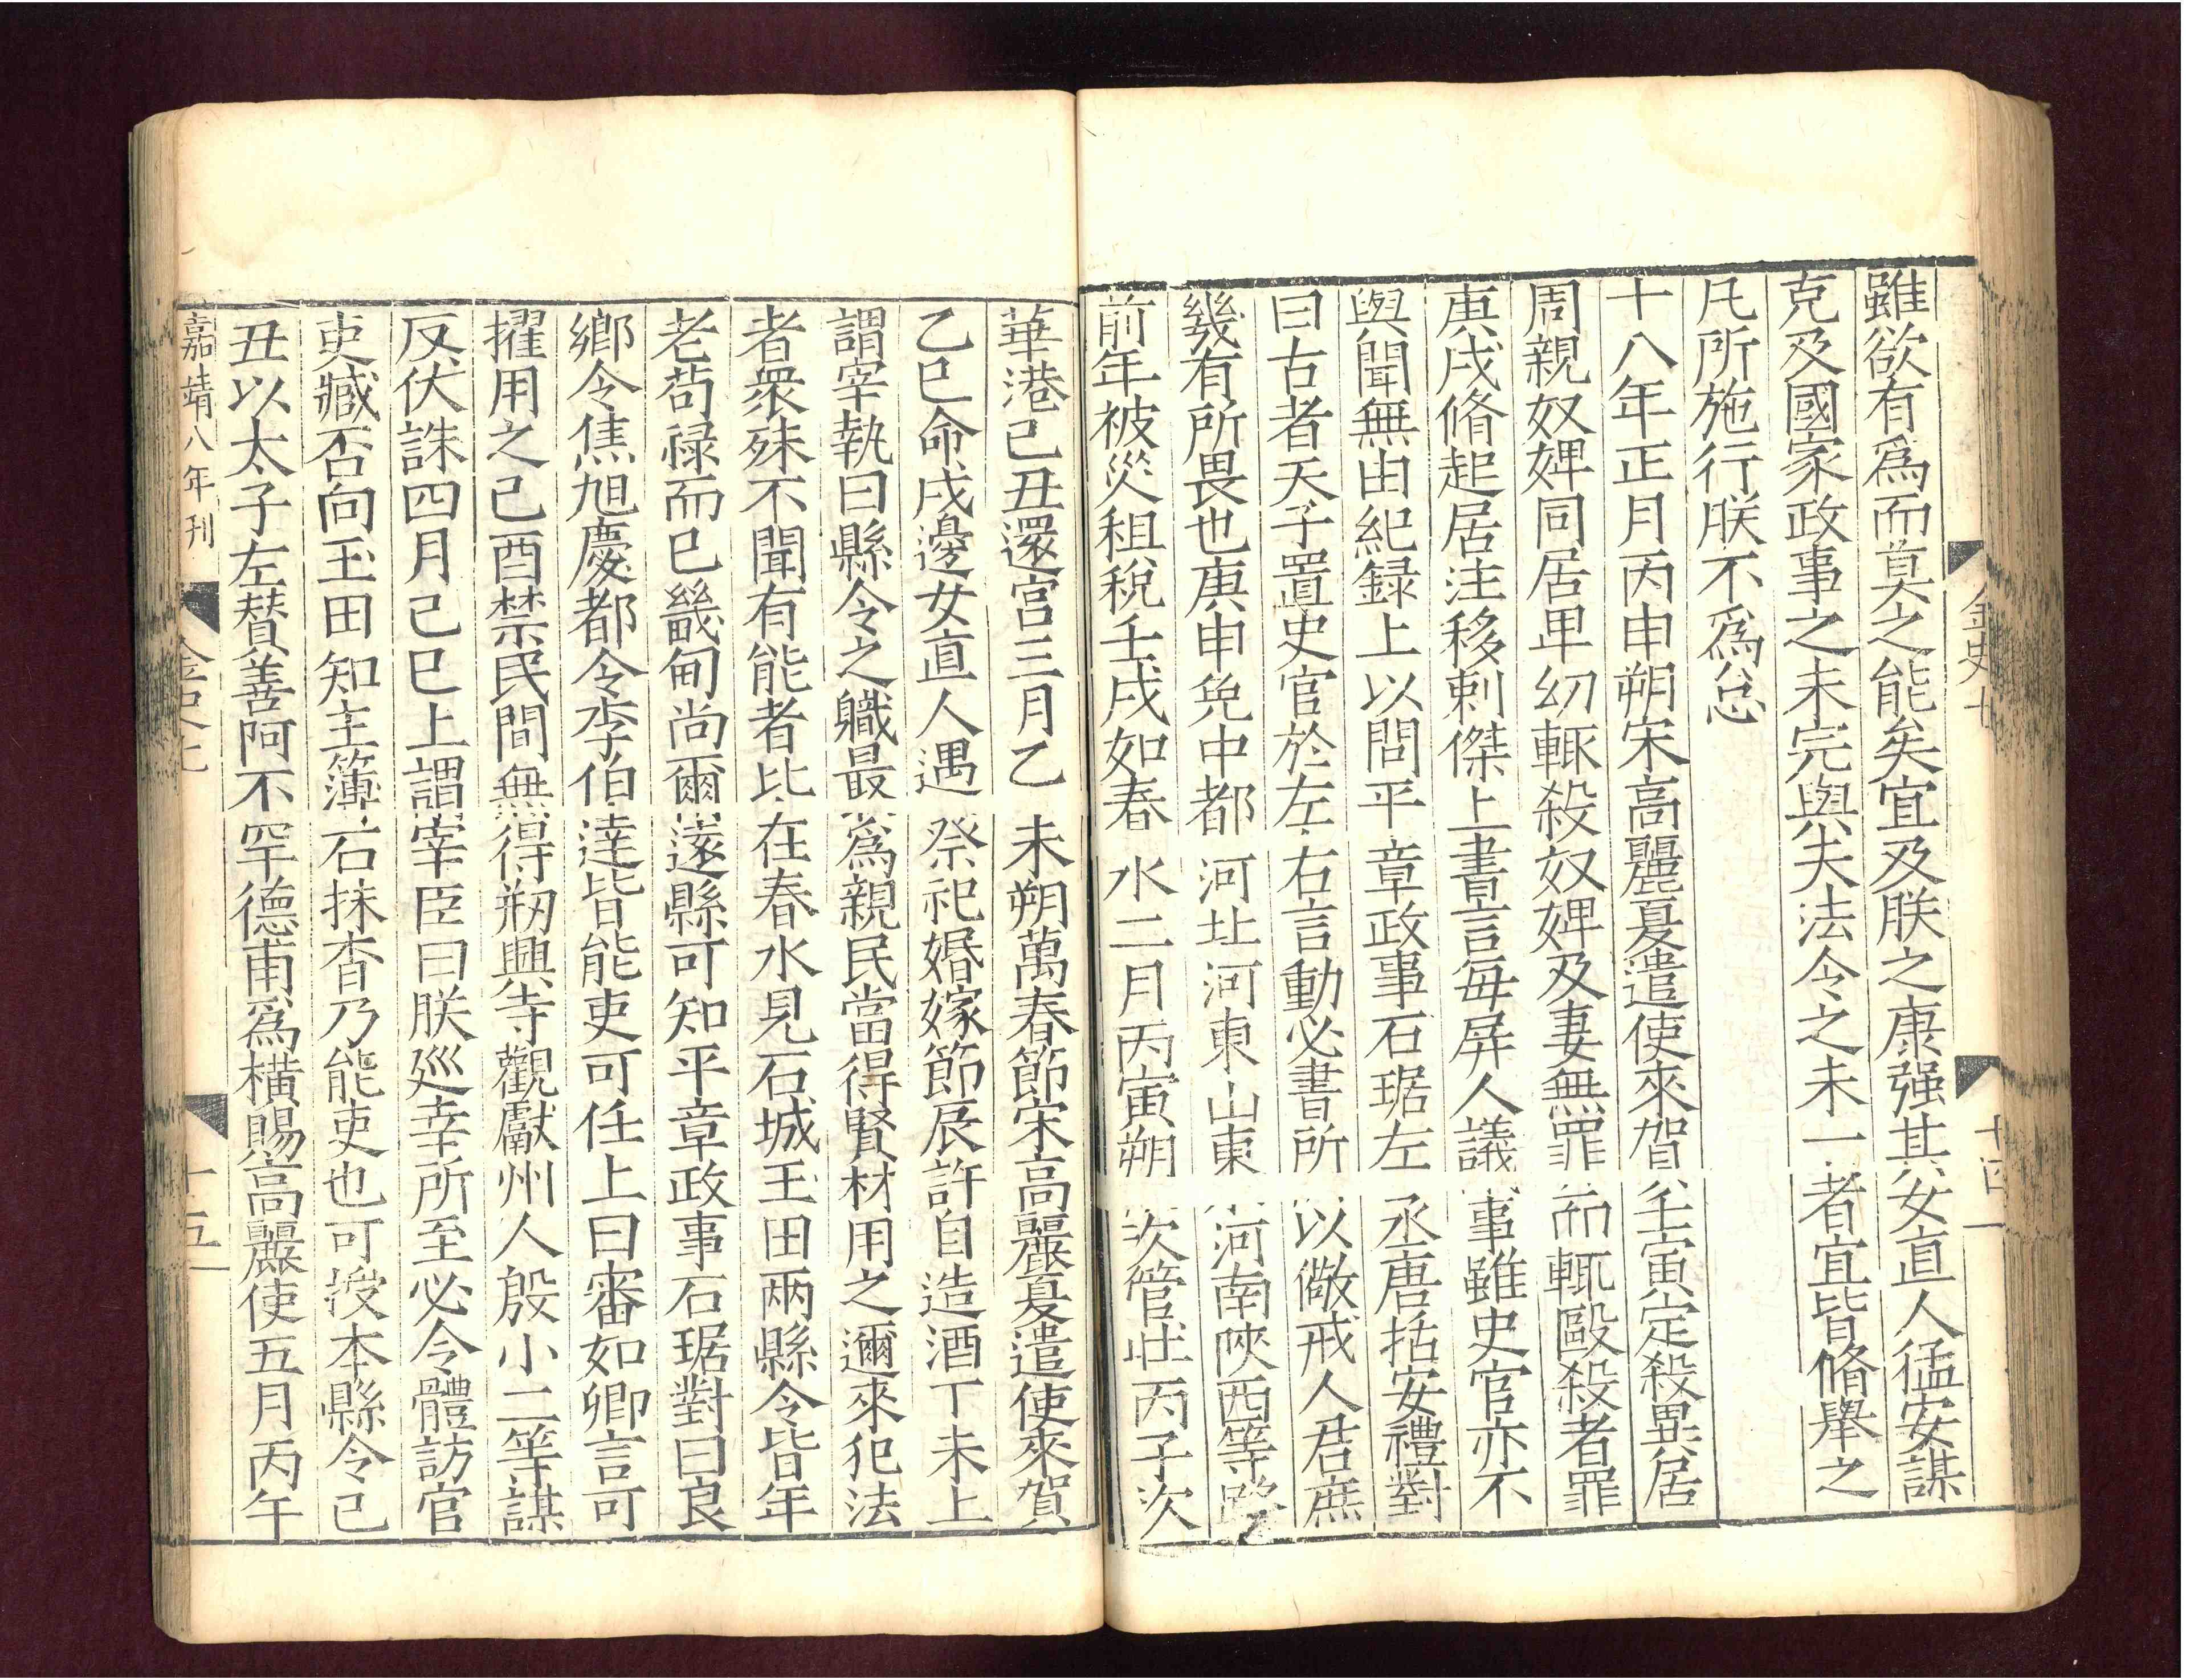 雖欲有爲而莫之能矣宜及朕之康强其女直人猛安謀
克及國家政事之未完與夫法令之未一者宜皆脩舉之
凡所施行朕不爲怠
十八年正月丙申朔宋高麗夏遣使來賀壬寅定殺異居
周親奴婢同居卑幼輒殺奴婢及妻無罪而輒毆殺者罪
庚戌脩起居注移剌傑上書言每屏人議事雖史官亦不
與聞無由紀録上以問平章政事石琚左丞唐括安禮對
曰古者天子置史官於左右言動必書所以儆戒人君庶
幾有所畏也庚申免中都河北河東山東河南陜西等路
前年被災租稅壬戌如春水二月丙寅朔次管莊丙子次
金史七
十四
華港己丑還宮三月乙未朔萬春節宋高麗夏遣使來賀
乙巳命戍邊女直人遇祭祀婚嫁節辰許自造酒丁未上
謂宰執曰縣令之職最爲親民當得賢材用之邇來犯法
者衆殊不聞有能者比在春水見石城玉田兩縣令皆年
老苟禄而已畿甸尚爾遠縣可知平章政事石琚對曰良
鄉令焦旭慶都令李伯達皆能吏可任上曰審如卿言可
擢用之己酉禁民間無得刱興寺觀獻州人殷小二等謀
反伏誅四月己巳上謂宰臣曰朕廵幸所至必令體訪官
吏臧否向玉田知主簿石抹杳乃能吏也可授本縣令己
丑以太子左賛善阿不罕德甫爲橫賜高麗使五月丙午
嘉靖八年刊
金史七
十五